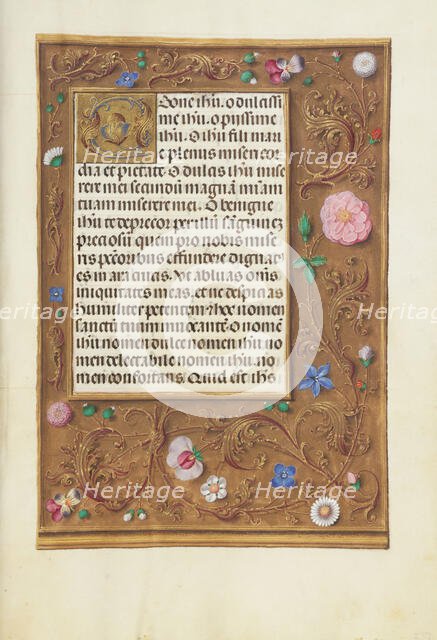 O Bone ihu. o dulcissi
me ihu. o piissime
ihu. O ihu fili mari
e plenus misericor
dia et pietate O dulcis ihu mise
rere mei secundum magnam miam
tuam miserere mei. O benigne
ihu te deprecor per illum sanguinem
preciosum quem pro nobis mise
ris peccatoribus effundere dignatus
es in ara crucis. Ut abluas omnes
iniquitates meas. et ne despicias
humiliter petentem
sanctissimum
ihu nomen dulce nomen ihu no
men delectabile nomen ihu no
men confortans. Quid est ihs
Heritage
Heritage
Heritage
Heritage
Heritage
Heritage
Heritage
Heritage